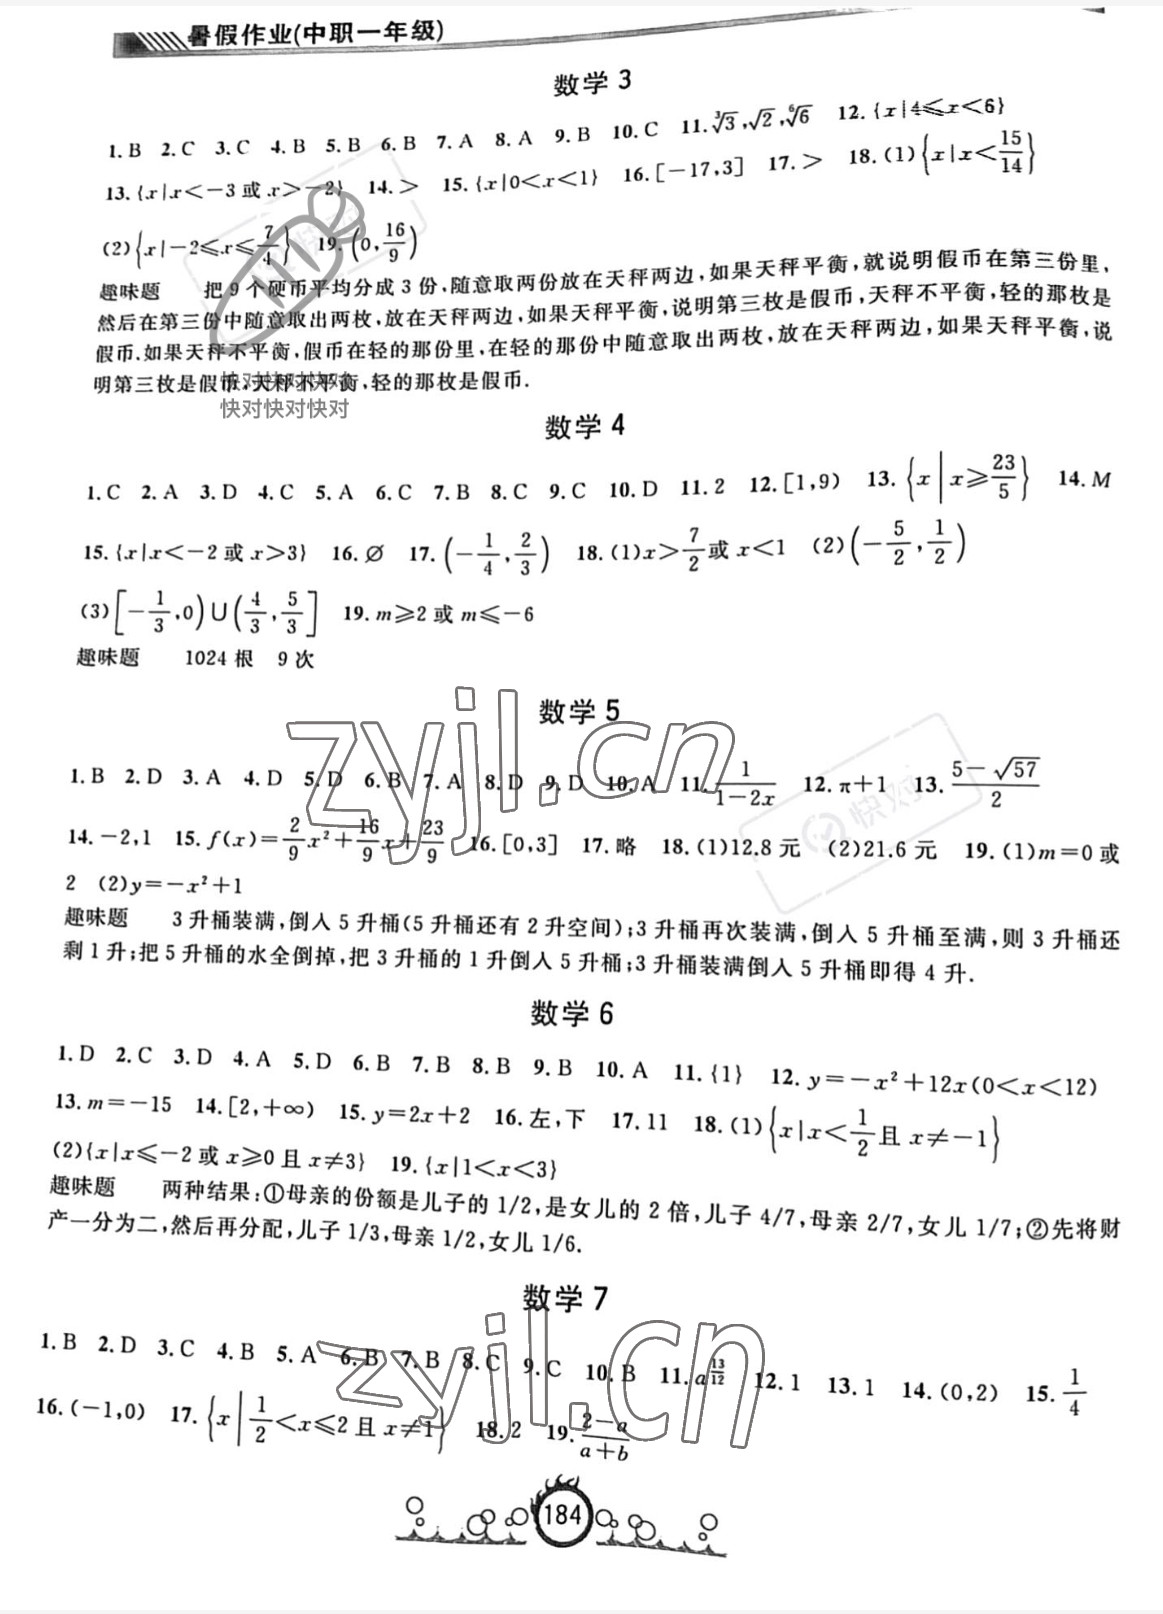 暑假作业(中职一年级)
数学 3
1. B 2. C 3. C 4. B 5. B 6. B 7. A 8. A 9. B 10. C 11. ∛3,√2,⁶√6 12. {x|4≤x<6}
13. {x|x<-3 或 x>-2} 14. > 15. {x|0<x<1} 16. [-17,3] 17. > 18. (1){x|x<15/14}
(2){x|-2≤x≤7/4} 19. (0,16/9)
趣味题 把 9 个硬币平均分成 3 份,随意取两份放在天秤两边,如果天秤平衡,就说明假币在第三份里,
然后在第三份中随意取出两枚,放在天秤两边,如果天秤平衡,说明第三枚是假币,天秤不平衡,轻的那枚是
假币.如果天秤不平衡,假币在轻的那份里,在轻的那份中随意取出两枚,放在天秤两边,如果天秤平衡,说
明第三枚是假币,天秤不平衡,轻的那枚是假币.
快对快对快对
快对快对快对
数学 4
1. C 2. A 3. D 4. C 5. A 6. C 7. B 8. C 9. C 10. D 11. 2 12. [1,9) 13. {x|x≥23/5} 14. M
15. {x|x<-2 或 x>3} 16. ∅ 17. (-1/4,2/3) 18. (1)x>7/2或 x<1 (2)(-5/2,1/2)
(3)[-1/3,0)∪(4/3,5/3] 19. m≥2 或 m≤-6
趣味题 1024 根 9 次
数学 5
zyjl.cn
快对
1. B 2. D 3. A 4. D 5. D 6. B 7. A 8. D 9. D 10. A 11. 1/(1-2x) 12. π+1 13. (5-√57)/2
14. -2,1 15. f(x)=2/9x²+16/9x+23/9 16. [0,3] 17. 略 18. (1)12.8 元 (2)21.6 元 19. (1)m=0 或
2 (2)y=-x²+1
趣味题 3 升桶装满,倒人 5 升桶(5 升桶还有 2 升空间);3 升桶再次装满,倒人 5 升桶至满,则 3 升桶还
剩 1 升;把 5 升桶的水全倒掉,把 3 升桶的 1 升倒人 5 升桶;3 升桶装满倒人 5 升桶即得 4 升.
数学 6
1. D 2. C 3. D 4. A 5. D 6. B 7. B 8. B 9. B 10. A 11. {1} 12. y=-x²+12x(0<x<12)
13. m=-15 14. [2,+∞) 15. y=2x+2 16. 左,下 17. 11 18. (1){x|x<1/2且 x≠-1}
(2){x|x≤-2 或 x≥0 且 x≠3} 19. {x|1<x<3}
趣味题 两种结果:①母亲的份额是儿子的 1/2,是女儿的 2 倍,儿子 4/7,母亲 2/7,女儿 1/7;②先将财
产一分为二,然后再分配,儿子 1/3,母亲 1/2,女儿 1/6.
数学 7
zyjl.cn
1. B 2. D 3. C 4. B 5. A 6. B 7. B 8. C 9. C 10. B 11. a^(13/12) 12. 1 13. 1 14. (0,2) 15. 1/4
16. (-1,0) 17. {x|1/2<x≤2 且 x≠1} 18. 2 19. (2-a)/(a+b)
184